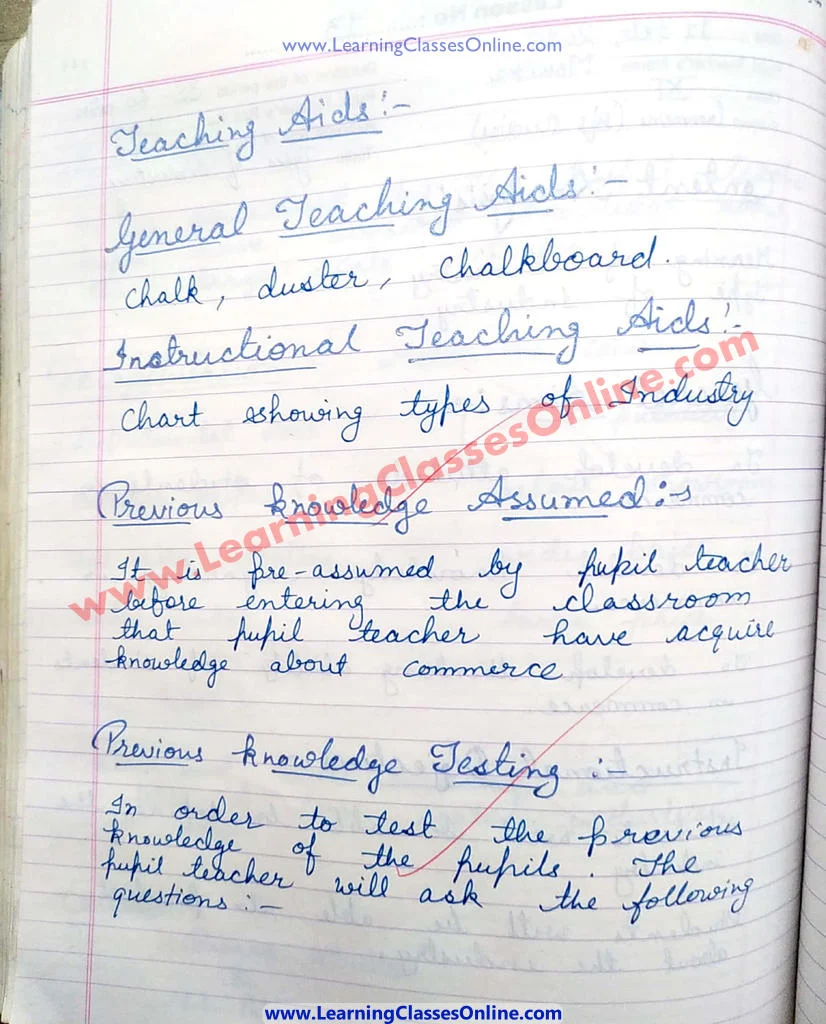 www.LearningClassesOnline.com
Teaching Aids:-
General Teaching Aids:-
Chalk, duster, Chalkboard.
Instructional Teaching Aids:-
Chart showing types of Industry
www.LearningClassesOnline.com
Previous knowledge Assumed:-
It is pre-assumed by pupil teacher
before entering the classroom
that pupil teacher have acquire
knowledge about commerce
Previous knowledge Testing :-
In order to test the previous
knowledge of the pupils. The
pupil teacher will ask the following
questions :-
www.LearningClassesOnline.com